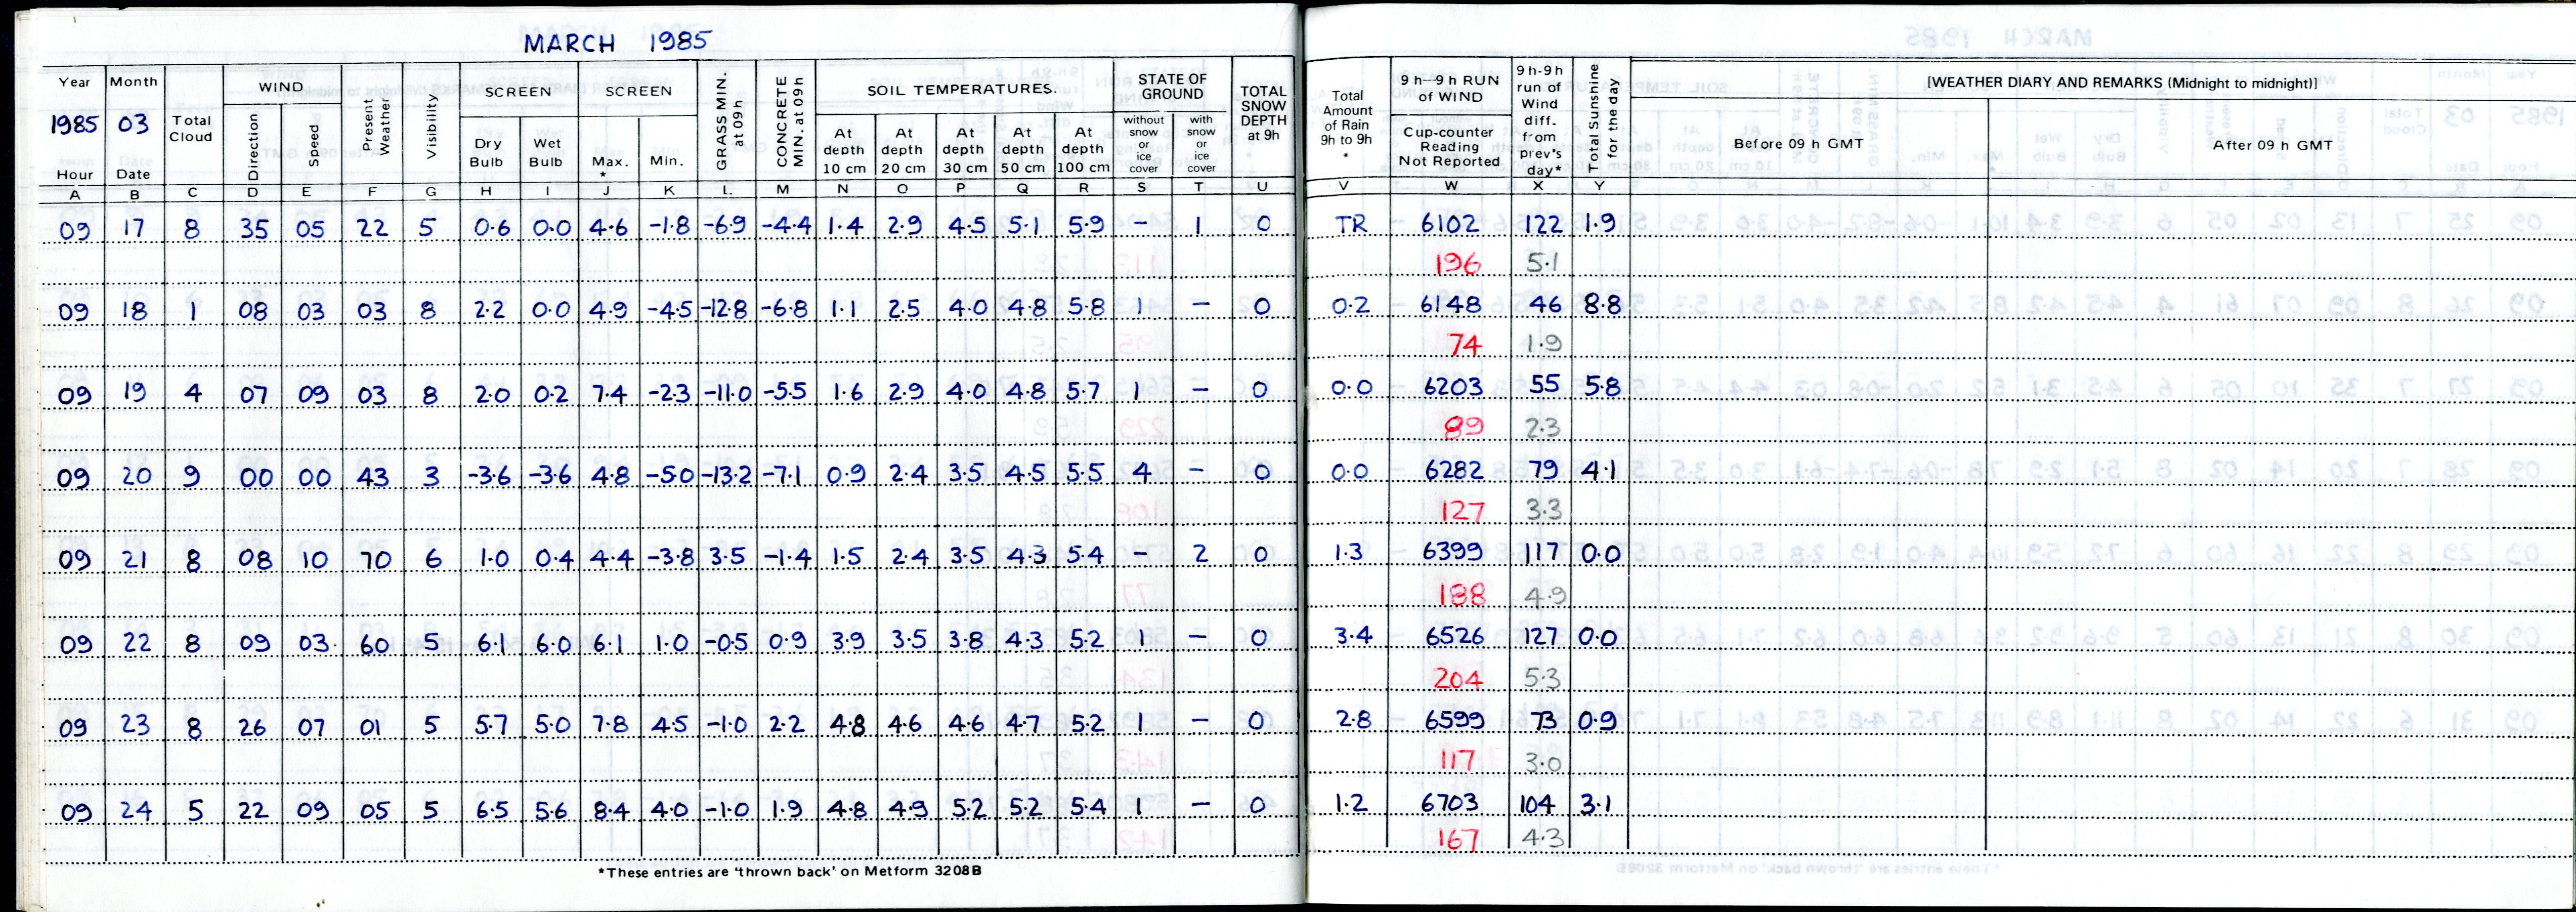 MARCH 1985
Year Month Total Cloud WIND Present Weather Visibility SCREEN SCREEN GRASS MIN. at 09h CONCRETE MIN. at 09h SOIL TEMPERATURES. STATE OF GROUND TOTAL SNOW DEPTH at 9h Total Amount of Rain 9h to 9h * 9 h—9 h RUN of WIND 9 h-9h run of Wind diff. from prev's day* Total Sunshine for the day [WEATHER DIARY AND REMARKS (Midnight to midnight)]
1985 03 Direction Speed Dry Bulb Wet Bulb Max. * Min. At depth 10 cm At depth 20 cm At depth 30 cm At depth 50 cm At depth 100 cm without snow or ice cover with snow or ice cover Cup-counter Reading Not Reported Before 09 h GMT After 09 h GMT
Hour Date
A B C D E F G H I J K L M N O P Q R S T U V W X Y
09 17 8 35 05 22 5 0.6 0.0 4.6 -1.8 -6.9 -4.4 1.4 2.9 4.5 5.1 5.9 - 1 0 TR 6102 122 1.9
196 5.1
09 18 1 08 03 03 8 2.2 0.0 4.9 -4.5 -12.8 -6.8 1.1 2.5 4.0 4.8 5.8 1 - 0 0.2 6148 46 8.8
74 1.9
09 19 4 07 09 03 8 2.0 0.2 7.4 -2.3 -11.0 -5.5 1.6 2.9 4.0 4.8 5.7 1 - 0 0.0 6203 55 5.8
89 2.3
09 20 9 00 00 43 3 -3.6 -3.6 4.8 -5.0 -13.2 -7.1 0.9 2.4 3.5 4.5 5.5 4 - 0 0.0 6282 79 4.1
127 3.3
09 21 8 08 10 70 6 1.0 0.4 4.4 -3.8 3.5 -1.4 1.5 2.4 3.5 4.3 5.4 - 2 0 1.3 6399 117 0.0
188 4.9
09 22 8 09 03 60 5 6.1 6.0 6.1 1.0 -0.5 0.9 3.9 3.5 3.8 4.3 5.2 1 - 0 3.4 6526 127 0.0
204 5.3
09 23 8 26 07 01 5 5.7 5.0 7.8 4.5 -1.0 2.2 4.8 4.6 4.6 4.7 5.2 1 - 0 2.8 6599 73 0.9
117 3.0
09 24 5 22 09 05 5 6.5 5.6 8.4 4.0 -1.0 1.9 4.8 4.9 5.2 5.2 5.4 1 - 0 1.2 6703 104 3.1
167 4.3
*These entries are 'thrown back' on Metform 3208B